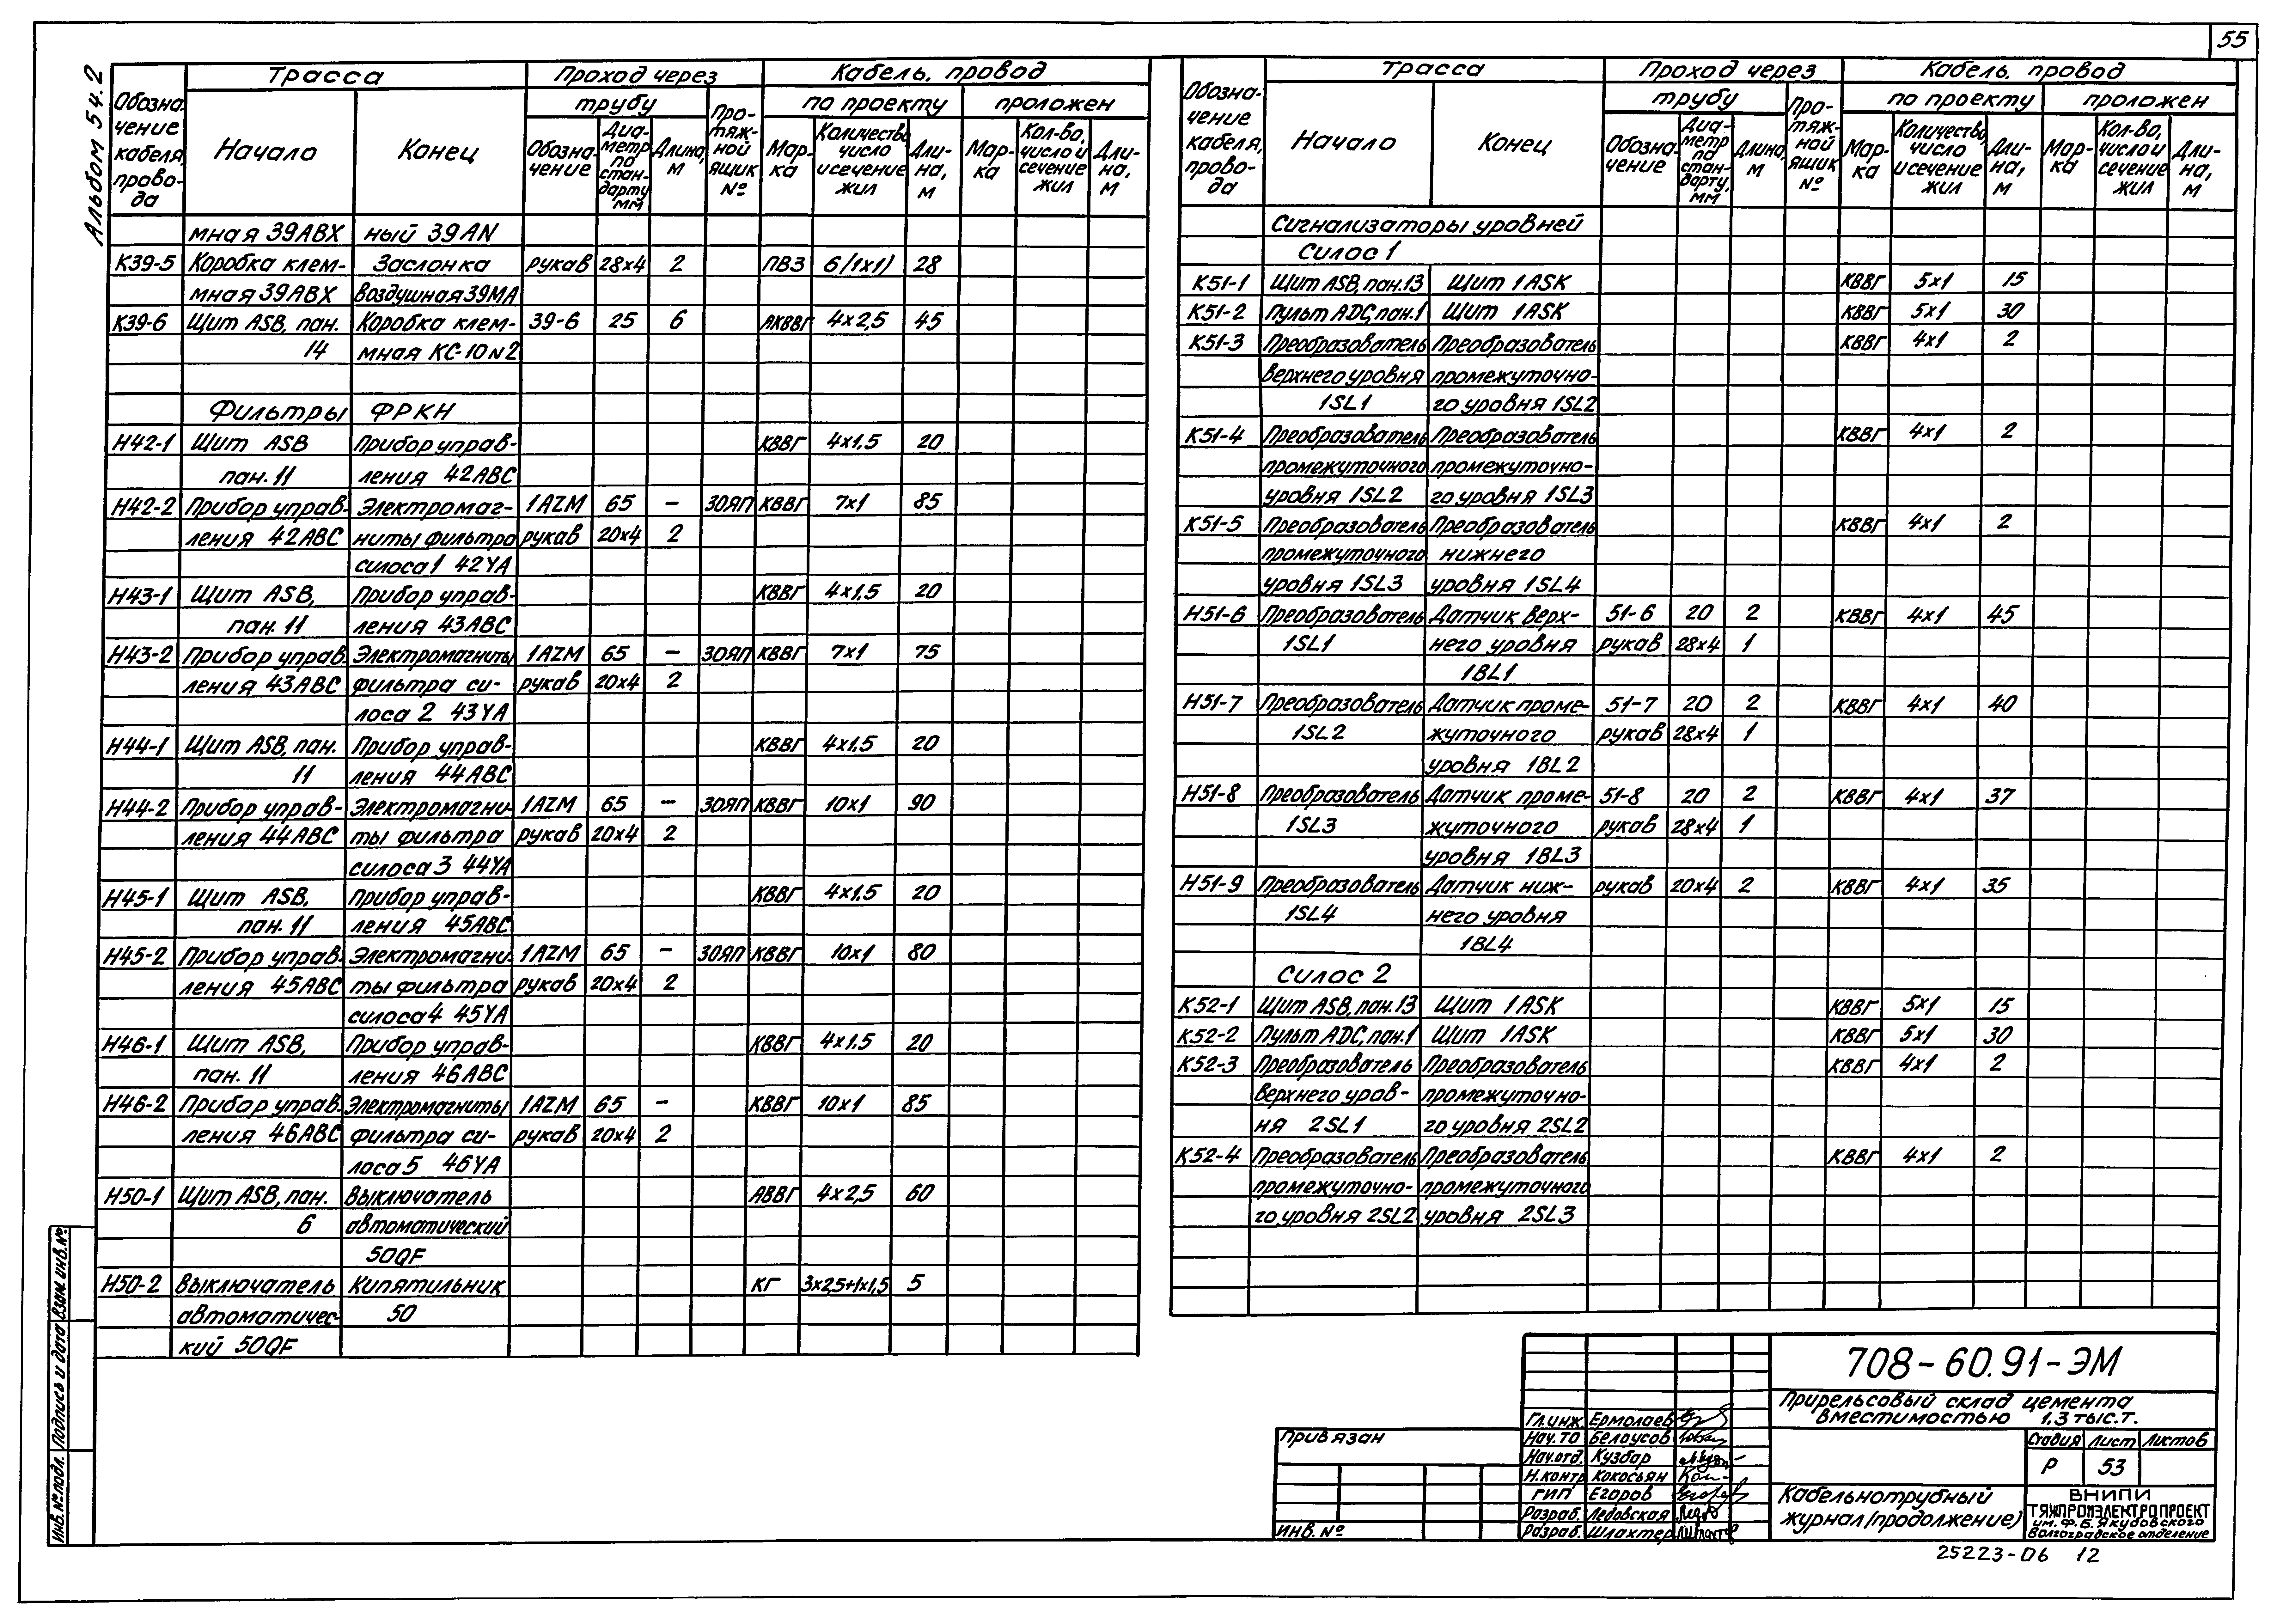 55
Альбом 54.2
Обозна-чение кабеля, прово-да | Трасса | Проход через | Кабель, провод
трубу | Про-тяж-ной ящик № | по проекту | проложен
Начало | Конец | Обозна-чение | Диа-метр по стан-дарту мм | Длина, м | Мар-ка | Количество, число и сечение жил | Дли-на, м | Мар-ка | Кол-во, число и сечение жил | Дли-на, м
мная 39АВХ ный 39АN
К39-5 Коробка клем- Заслонка рукав 28х4 2 ПВ3 6/1х1) 28
мная 39АВХ воздушная 39МА
К39-6 Щит ASB, пан. Коробка клем- 39-6 25 6 АКВВГ 4х2,5 45
14 мная КС-10 N2
Фильтры ФРКН
Н42-1 Щит ASB Прибор управ- КВВГ 4х1.5 20
пан. 11 ления 42АВС
Н42-2 Прибор управ- Электромаг- 1AZM 65 – 30ЯП КВВГ 7х1 85
ления 42АВС ниты фильтра рукав 20х4 2
силоса 1 42YA
Н43-1 Щит ASB, Прибор управ- КВВГ 4х1,5 20
пан. 11 ления 43АВС
Н43-2 Прибор управ- Электромагниты 1AZM 65 – 30ЯП КВВГ 7х1 75
ления 43АВС фильтра си- рукав 20х4 2
лоса 2 43YA
Н44-1 Щит ASB, пан. Прибор управ- КВВГ 4х1.5 20
11 ления 44АВС
Н44-2 Прибор управ- Электромагни- 1AZM 65 – 30ЯП КВВГ 10х1 90
ления 44АВС ты фильтра рукав 20х4 2
силоса 3 44YA
Н45-1 Щит ASB, Прибор управ- КВВГ 4х1.5 20
пан. 11 ления 45АВС
Н45-2 Прибор управ- Электромагни- 1AZM 65 – 30ЯП КВВГ 10х1 80
ления 45АВС ты фильтра рукав 20х4 2
силоса 4 45YA
Н46-1 Щит ASB, Прибор управ- КВВГ 4х1.5 20
пан. 11 ления 46АВС
Н46-2 Прибор управ- Электромагниты 1AZM 65 – КВВГ 10х1 85
ления 46АВС фильтра си- рукав 20х4 2
лоса 5 46YA
Н50-1 Щит ASB, пан. Выключатель АВВГ 4х2,5 60
6 автоматический
50QF
Н50-2 Выключатель Кипятильник КГ 3х2,5+1х1,5 5
автоматичес- 50
кий 50QF
Обозна-чение кабеля, прово-да | Трасса | Проход через | Кабель, провод
трубу | Про-тяж-ной ящик № | по проекту | проложен
Начало | Конец | Обозна-чение | Диа-метр по стан-дарту, мм | Длина, м | Мар-ка | Количество, число и сечение жил | Дли-на, м | Мар-ка | Кол-во, число и сечение жил | Дли-на, м
Сигнализаторы уровней
Силос 1
К51-1 Щит ASB, пан. 13 Щит 1ASK КВВГ 5х1 15
К51-2 Пульт ADC, пан. 1 Щит 1ASK КВВГ 5х1 30
К51-3 Преобразователь Преобразователь КВВГ 4х1 2
верхнего уровня промежуточно-
1SL1 го уровня 1SL2
К51-4 Преобразователь Преобразователь КВВГ 4х1 2
промежуточного промежуточно-
уровня 1SL2 го уровня 1SL3
К51-5 Преобразователь Преобразователь КВВГ 4х1 2
промежуточного нижнего
уровня 1SL3 уровня 1SL4
Н51-6 Преобразователь Датчик верх- 51-6 20 2 КВВГ 4х1 45
1SL1 него уровня рукав 28х4 1
1BL1
Н51-7 Преобразователь Датчик проме- 51-7 20 2 КВВГ 4х1 40
1SL2 жуточного рукав 28х4 1
уровня 1BL2
Н51-8 Преобразователь Датчик проме- 51-8 20 2 КВВГ 4х1 37
1SL3 жуточного рукав 28х4 1
уровня 1BL3
Н51-9 Преобразователь Датчик ниж- рукав 20х4 2 КВВГ 4х1 35
1SL4 него уровня
1BL4
Силос 2
К52-1 Щит ASB, пан. 13 Щит 1ASK КВВГ 5х1 15
К52-2 Пульт ADC, пан. 1 Щит 1ASK КВВГ 5х1 30
К52-3 Преобразователь Преобразователь КВВГ 4х1 2
верхнего уров- промежуточно-
ня 2SL1 го уровня 2SL2
К52-4 Преобразователь Преобразователь КВВГ 4х1 2
промежуточно- промежуточного
го уровня 2SL2 уровня 2SL3
Инв. № подл. Подпись и дата Взам. инв. №
Привязан
Инв. №
Гл.инж. Ермолаев
Нач. ТО Белоусов
Нач.отд. Кузбар
Н.контр. Кокосьян
ГИП Егоров
Разраб. Ледовская
Разраб. Шлахтер
708-60.91-ЭМ
Прирельсовый склад цемента
вместимостью 1,3 тыс.т.
Стадия Лист Листов
Р 53
Кабельнотрубный
журнал (продолжение)
ВНИПИ
ТЯЖПРОМЭЛЕКТРОПРОЕКТ
им. Ф.Б. Якубовского
Волгоградское отделение
25223-06 12